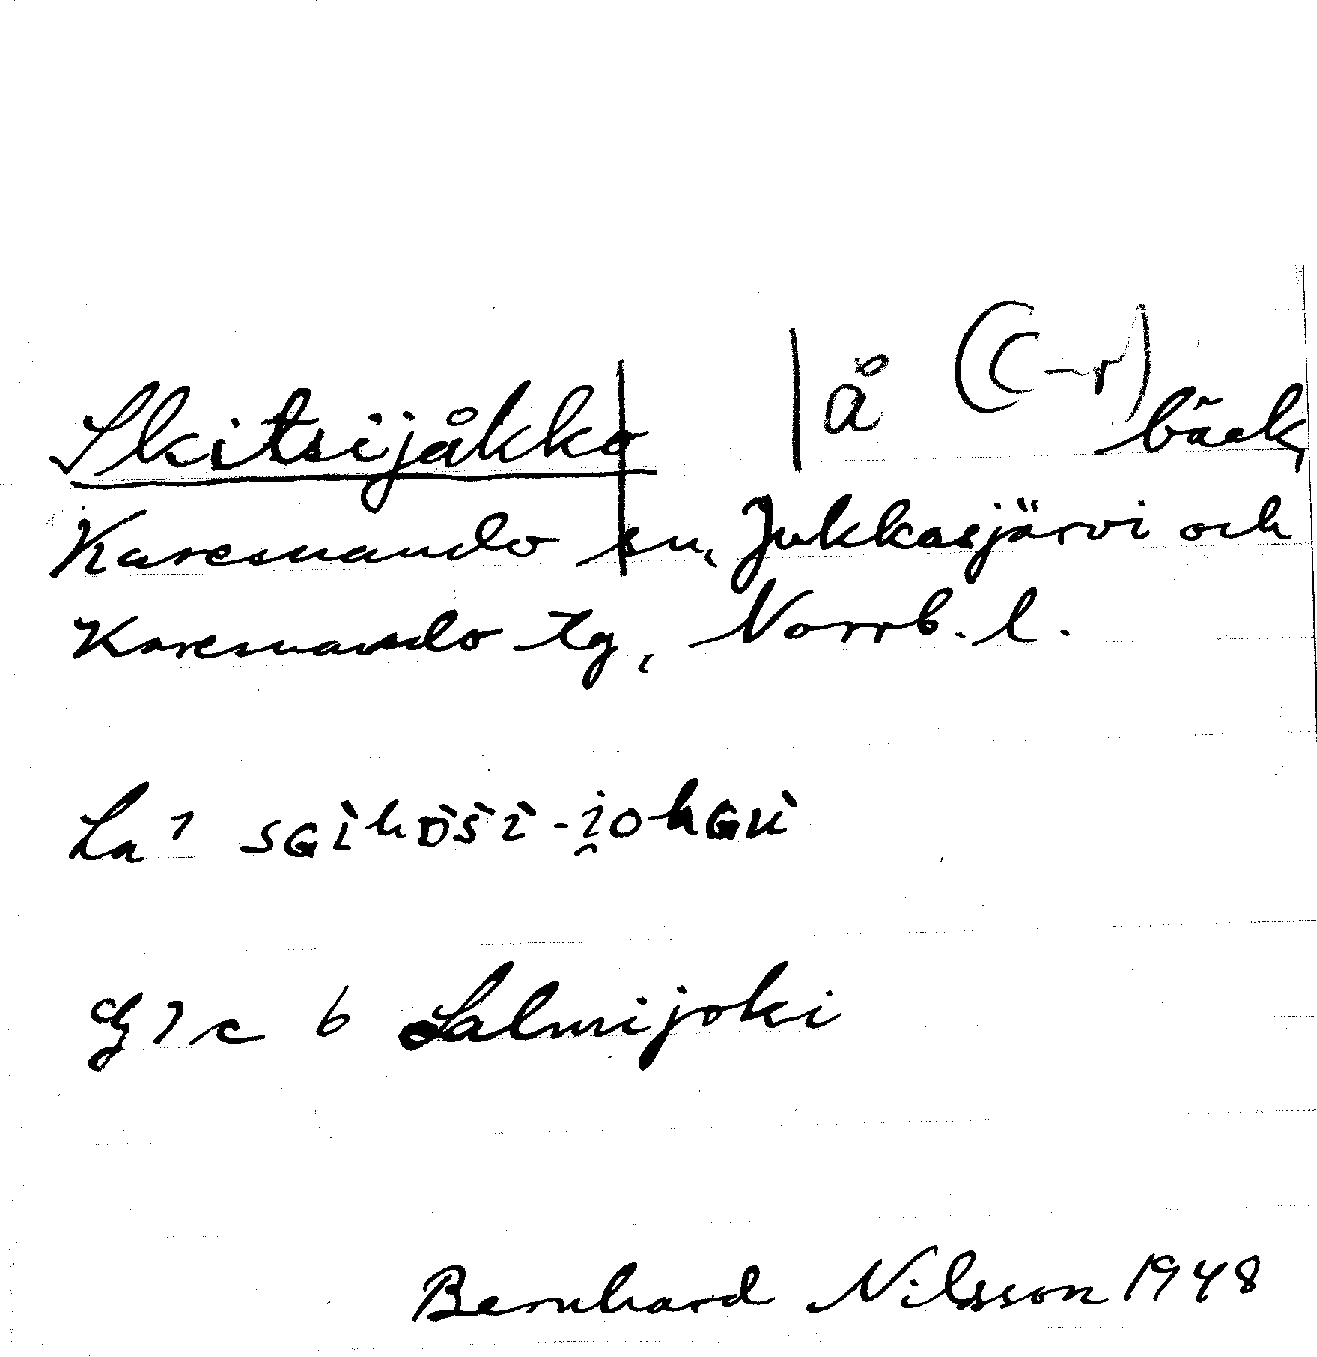 Skitsijåkko | å (C-r) bäck,
Karesuando sn, Jukkasjärvi och
Karesuando tg, Norrb. l.
La
b Salmijoki
Bernhard Nilsson 1948